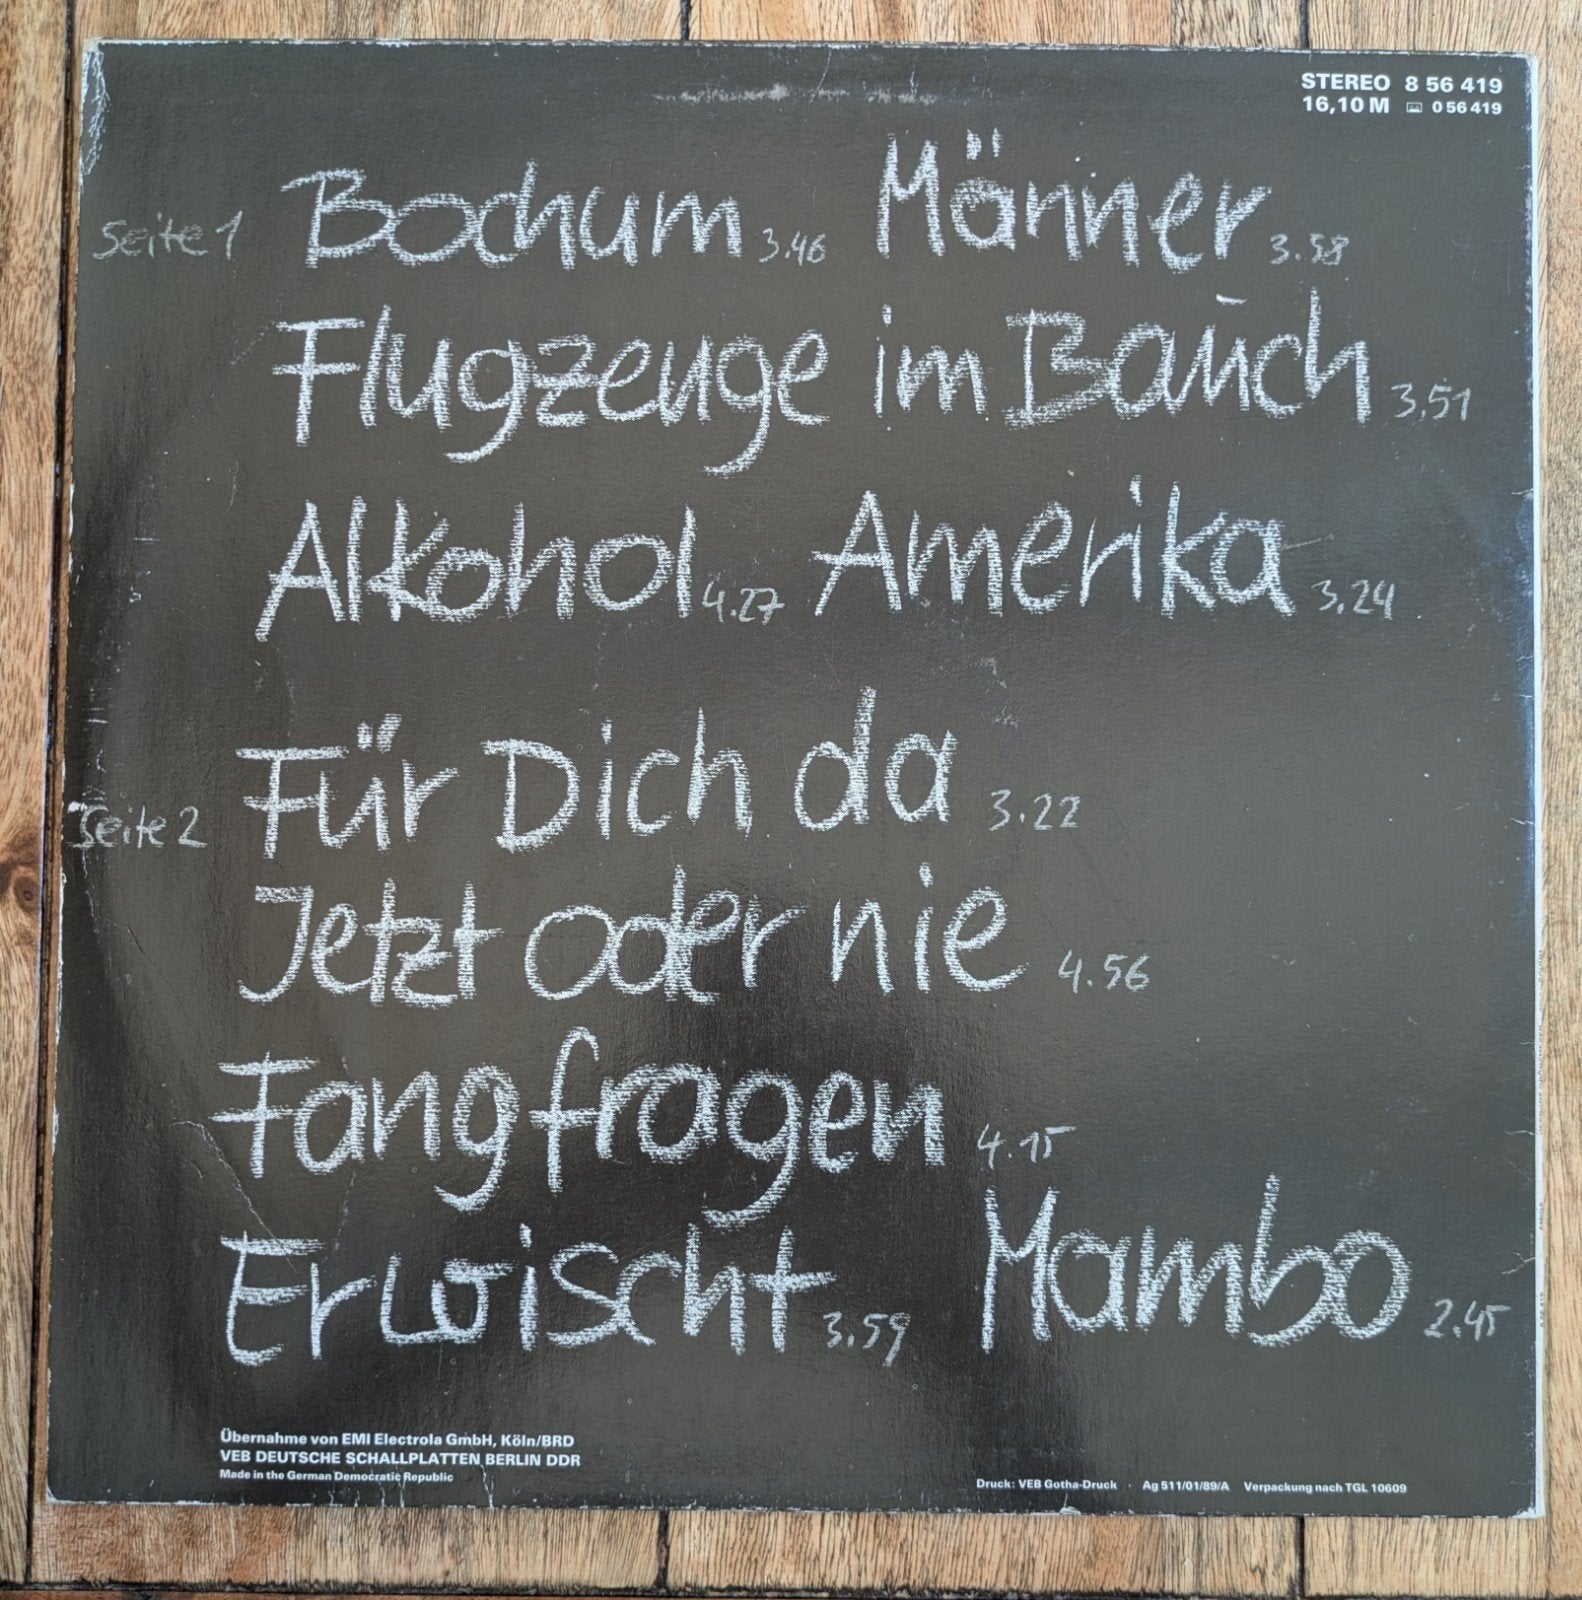 STEREO 8 56 419
16,10 M 0 56 419
Seite 1 Bochum 3.46 Männer 3.58
Flugzeuge im Bauch 3.51
Alkohol 4.27 Amerika 3.24
Seite 2 Für Dich da 3.22
Jetzt oder nie 4.56
Fangfragen 4.15
Erwischt 3.59 Mambo 2.45
Übernahme von EMI Electrola GmbH, Köln/BRD
VEB DEUTSCHE SCHALLPLATTEN BERLIN DDR
Made in the German Democratic Republic
Druck: VEB Gotha-Druck Ag 511/01/89/A Verpackung nach TGL 10609